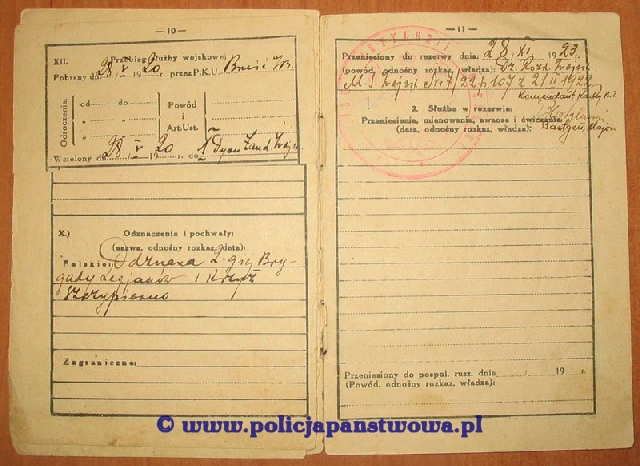 — 10 —
XII. Przebieg służby wojskowej
Pobrany dn. 28 V 1920 przez P.K.U. Brześć n/B.
Odroczenia
od do Powód i Art. Ust.
Wcielony dn. 28 V 20 19 do
X.) Odznaczenia i pochwały:
(nazwa, odnośny rozkaz, data):
Polskie: Odznaka 2 giej Bry-
gady Legjonów i Krzyż
Szczypiorno
Zagraniczne:
— 11 —
Przeniesiony do rezerwy dnia: 28. XI. 1923.
(powód, odnośny rozkaz, władza): Dz. Rozk.
M. S. Wojsk. Nr 7/22 p. 107 z 21/II 1922
Komendant Kadry
2. Służba w rezerwie:
Przeniesienie, mianowania, awanse i ćwiczenia
(data, odnośny rozkaz, władza):
Major
Przeniesiony do pospol. rusz. dnia 19 r.
(Powód, odnośny rozkaz, władza):
© www.policjapanstwowa.pl